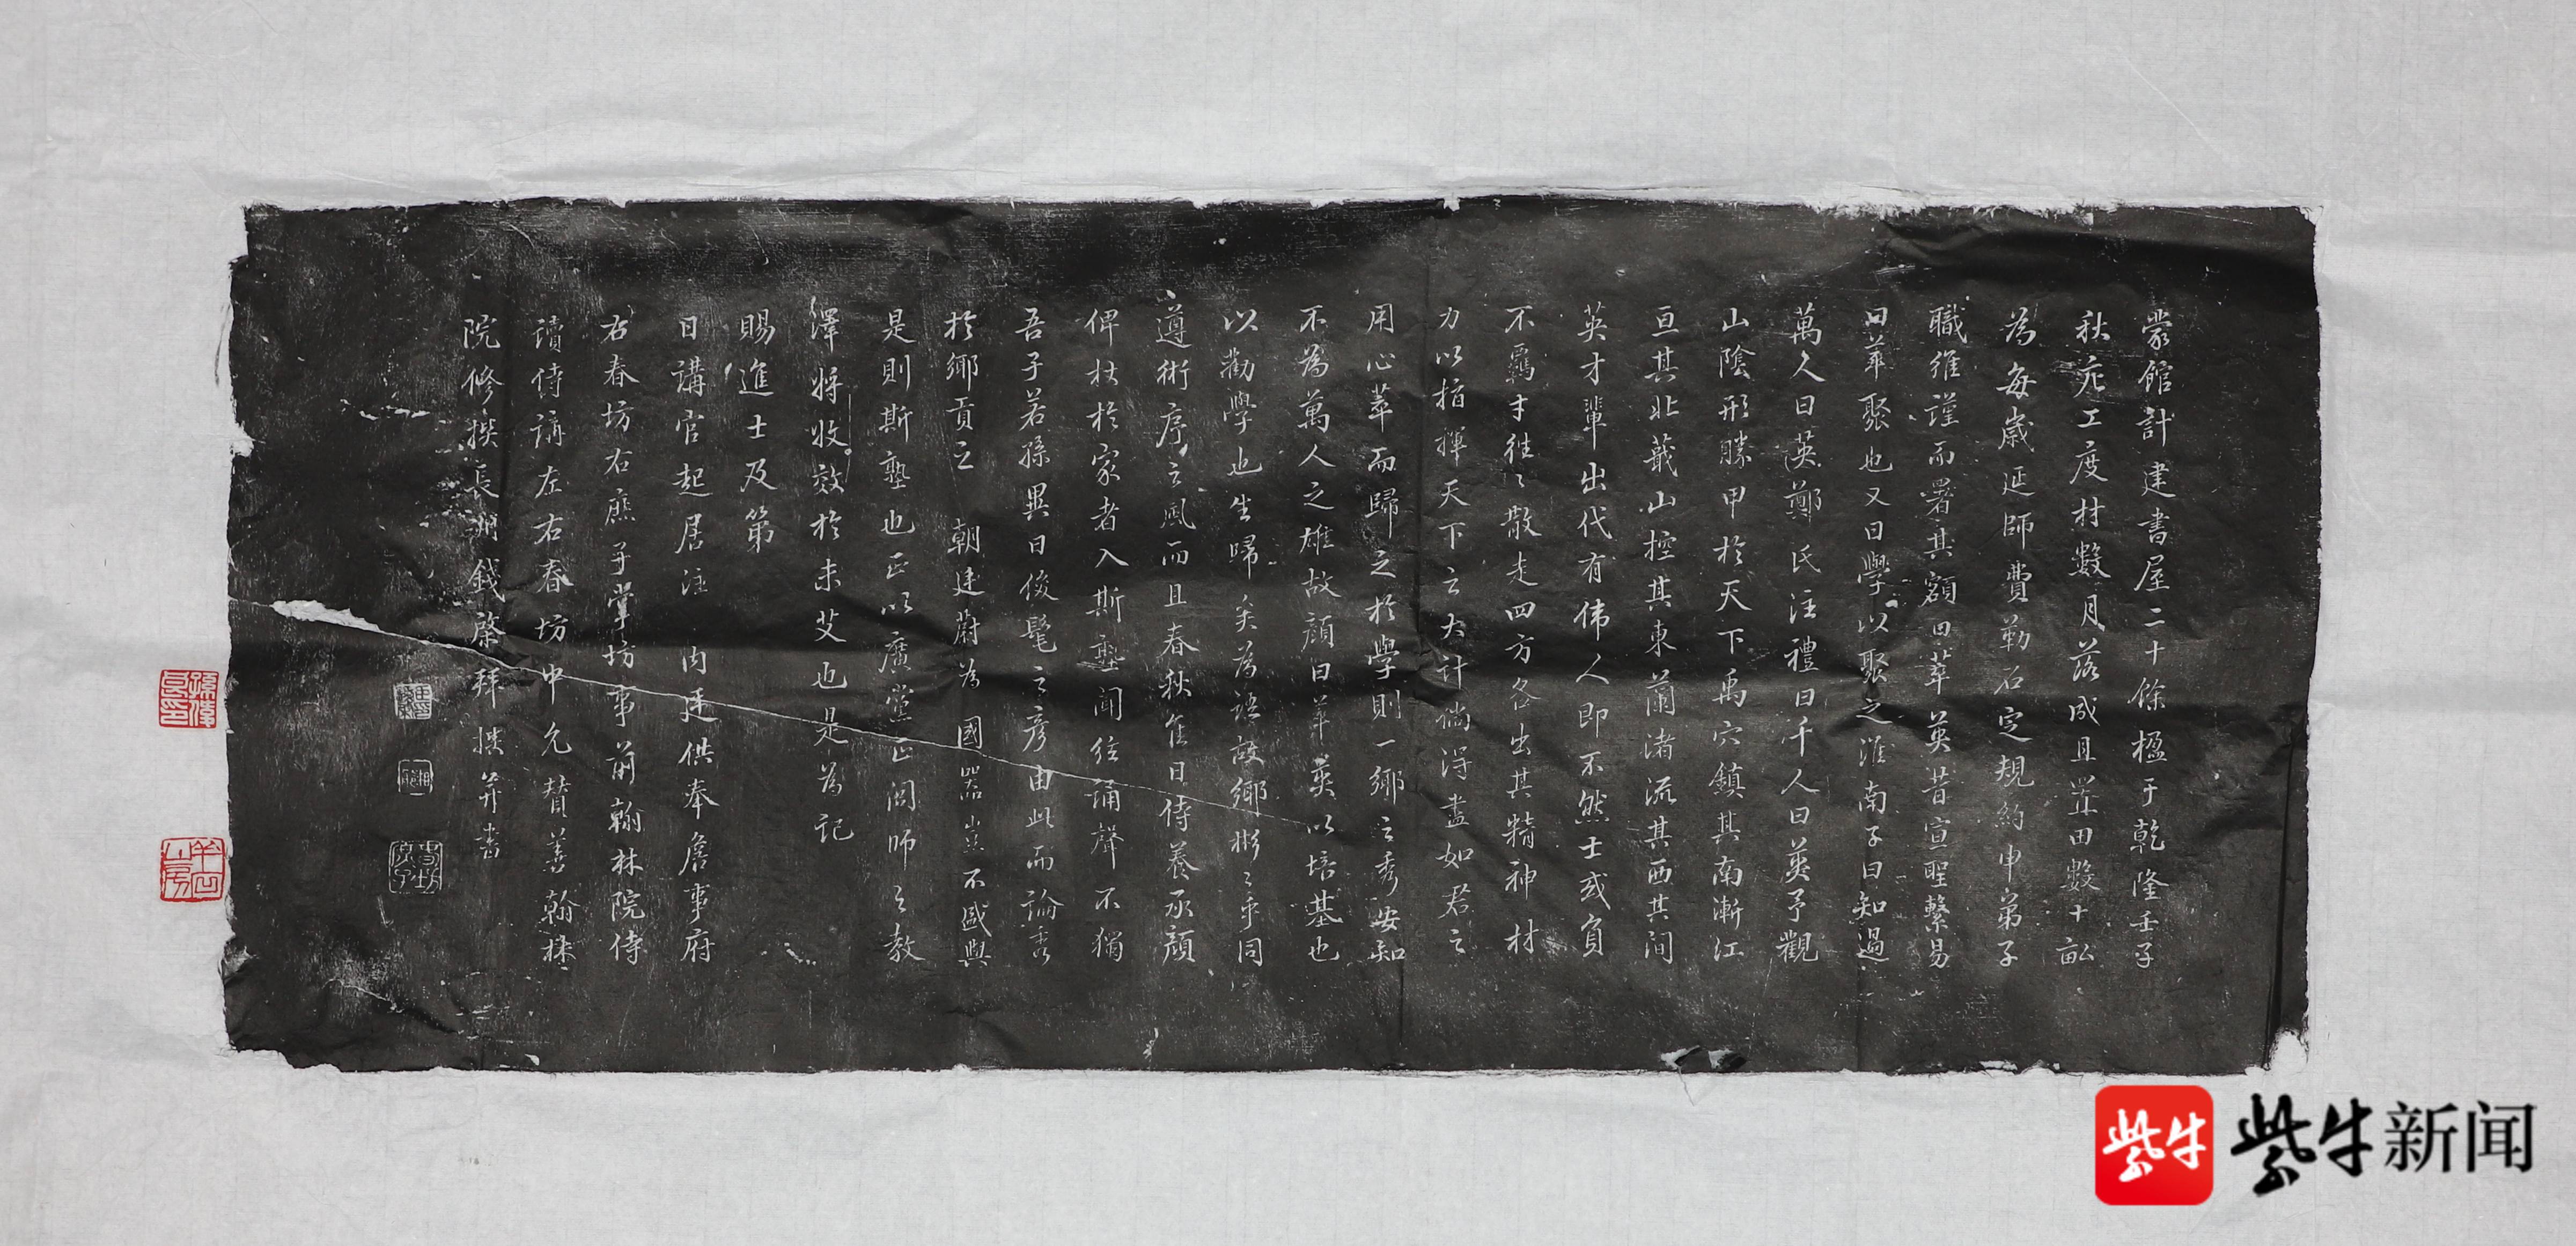 蒙館計建書屋二十餘楹于乾隆壬子
秋庀工度材數月落成且置田數十畝
為每歲延師費勒石定規約申弟子
職維謹而署其額曰萃英昔宣聖繫易
曰萃聚也又曰學以聚之淮南子曰知過
萬人曰英鄭氏注禮曰千人曰英予觀
山陰形勝甲於天下禹穴鎮其南漸江
亘其北蕺山控其東蘭渚流其西其間
英才輩出代有偉人即不然士或負
不羈才往往散走四方各出其精神材
力以指揮天下之大計倘得盡如君之
用心萃而歸之於學則一鄉之秀安知
不為萬人之雄故顏曰萃英以培基也
以勸學也生歸矣為語故鄉彬彬乎同
遵術序之風而且春秋佳日侍養承顏
俾杖於家者入斯塾聞弦誦聲不獨
吾子若孫異日俊髦之彥由此而論秀
於鄉貢之 朝廷蔚為 國器豈不盛與
是則斯塾也正以廣黨正閭師之教
澤將收效於未艾也是為記
賜進士及第
日講官起居注 內廷供奉詹事府
右春坊右庶子掌坊事前翰林院侍
讀侍講左右春坊中允贊善翰林
院修撰長洲錢棨拜撰并書
紫牛
紫牛新闻